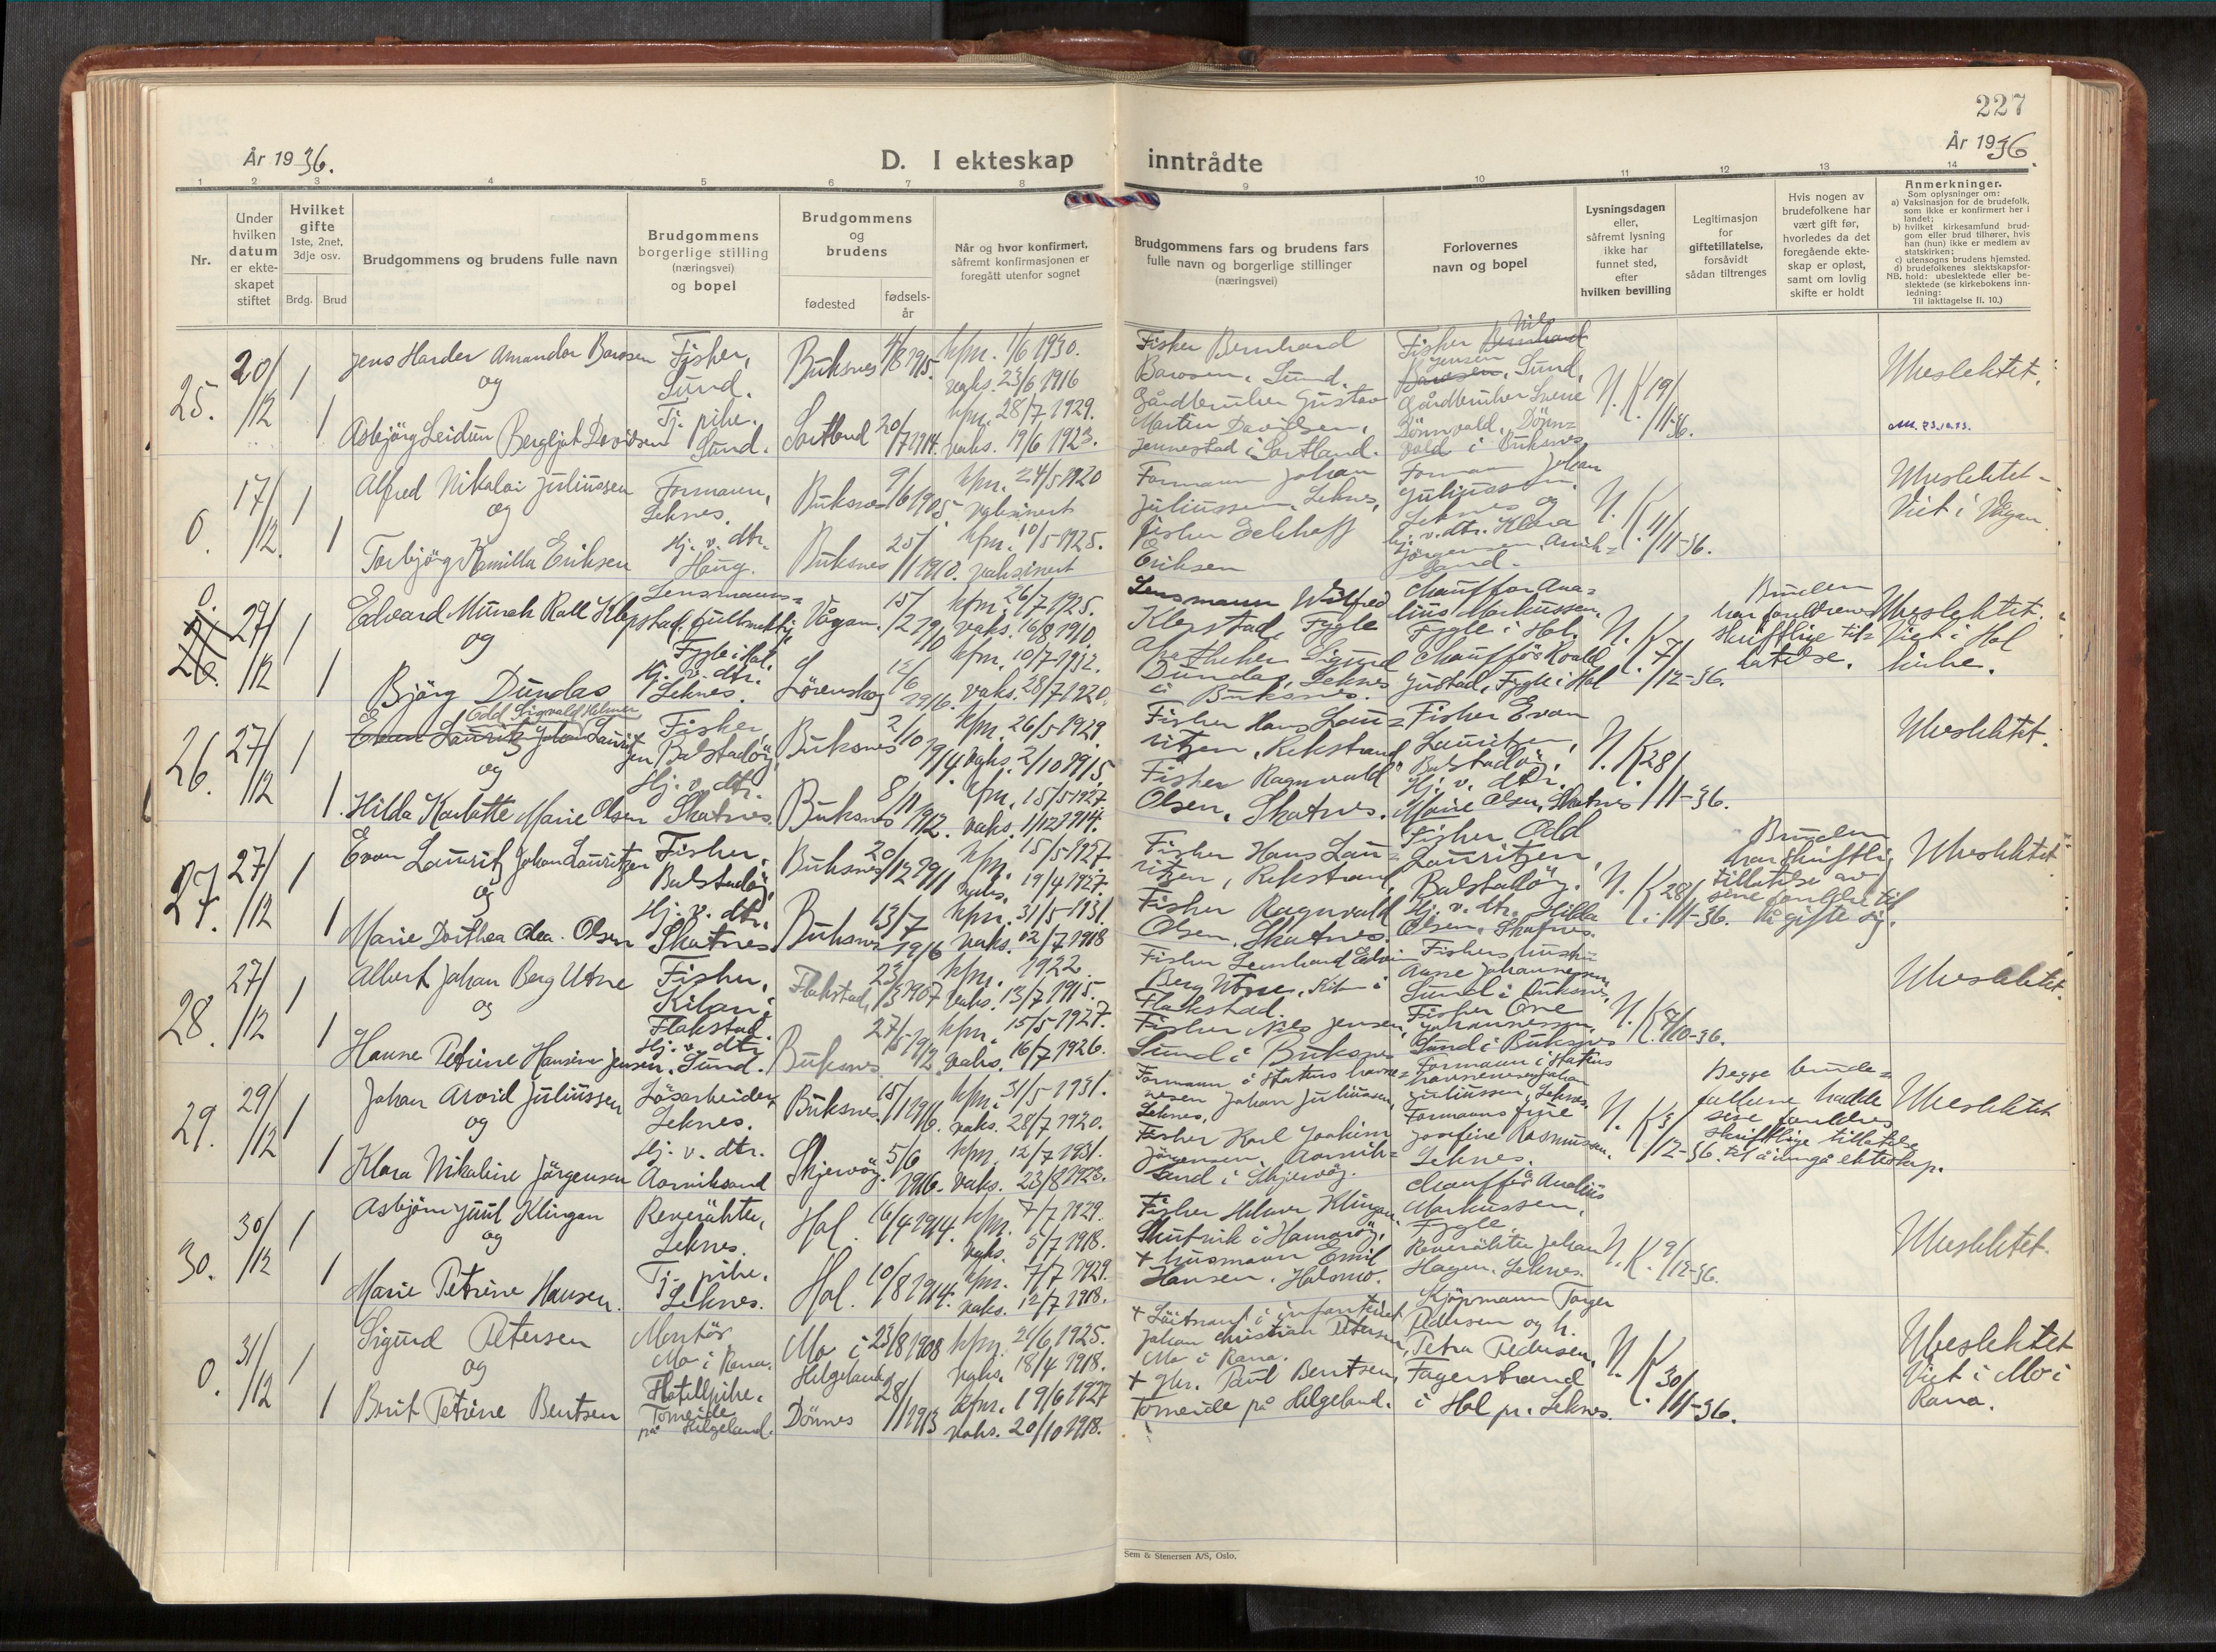 227
År 1936.
D. I ekteskap inntrådte
År 1936.
1 2 3 4 5 6 7 8 9 10 11 12 13 14
Nr.
Under hvilken datum er ekte-skapet stiftet
Hvilket gifte
1ste, 2net, 3dje osv.
Brdg. Brud
Brudgommens og brudens fulle navn
Brudgommens borgerlige stilling (næringsvei) og bopel
Brudgommens og brudens
fødested
fødsels-år
Når og hvor konfirmert, såfremt konfirmasjonen er foregått utenfor sognet
Brudgommens fars og brudens fars fulle navn og borgerlige stillinger (næringsvei)
Forlovernes navn og bopel
Lysningsdagen eller, såfremt lysning ikke har funnet sted, efter hvilken bevilling
Legitimasjon for giftetillatelse, forsåvidt sådan tiltrenges
Hvis nogen av brudefolkene har vært gift før, hvorledes da det foregående ekte-skap er opløst, samt om lovlig skifte er holdt
Anmerkninger.
Som oplysninger om:
a) Vaksinasjon for de brudefolk, som ikke er konfirmert her i landet;
b) hvilket kirkesamfund brud-gom eller brud tilhører, hvis han (hun) ikke er medlem av statskirken;
c) utensogns brudens hjemsted.
d) brudefolkenes slektskapsfor-hold: ubeslektede eller be-slektede (se kirkebokens inn-ledning:
NB.
Til iakttagelse II. 10.)
25. 20/12 1 Jens Harder Amandor Barosen Fisker, Sund. Buksnes 4/8 1915. kfm. 1/6 1930. vaks. 23/6 1916
Fisker Bernhard Barosen, Sund. Fisker Nils Jensen, Sund, N. K. 19/11-36. Ubeslektet.
og
1 Asbjörg Leidun Bergljot Davidsen Tj. pike. Sund. Sortland 20/7 1914. kfm. 28/7 1929. vaks. 19/6 1923.
Gårdbruker Gustav Martin Davidsen, Jennestad i Sortland. Gårdbruker Sverre Dönnvold, Dönn=vold i Buksnes
0. 17/12. 1 Alfred Nikolai Juliussen Formann, Leknes. Buksnes 9/6 1905 kfm. 24/5 1920 vaksinert
Formann Johan Juliussen, Leknes, Forman Johan Juliussen. Leknes og N. K. 11/11-36. Ubeslektet - Viet i Vågan.
og
1 Torbjörg Kamilla Eriksen Hj. v. dtr. Haug. Buksnes 25/1 1910. kfm. 10/5 1925. vaksinert
Fisker Eckhoff Eriksen hj. v. dtr. Klara Jörgensen
0. 26. 27/12 1 Edvard Münch Roll Klepstad Lensmanns=fullmektig Fygle i Hol. Vågan. 15/2 1910 kfm. 26/7 1925. vaks. 16/8 1910.
Lensmann Wilfred Klepstad, Fygle Chauffør Ana=lius Markussen, Fygle i Hol. N. K. 7/12-36. Bruden har foreldrenes skriftlige til=latelse. Ubeslektet. Viet i Hol kirke.
og
1 Björg Dundas Hj. v. dtr. Leknes. Lörenskog 12/6 1916. kfm. 10/7 1932. vaks. 28/7 1920
Apotheker Sigurd Dundas, Leknes i Buksnes. Chauffør Roald Justad, Fygle i Hol
26. 27/12 1 Odd Sigvald Helmer Lauritzen Fisker, Balstadöy, Buksnes 2/10 1914. kfm. 26/5 1929. vaks. 2/10 1915.
Fisker Hans Lau=ritzen, Rekstrand Fisker Evan Lauritzen, Balstadöy. N. K. 28/11-36. Ubeslektet.
og
1. Hilda Karlotte Marie Olsen Hj. v. dtr. Skatnes. Buksnes 8/11 1912. kfm. 15/5 1927 vaks. 1/12 1914.
Fisker Ragnvald Olsen, Skatnes. Hj. v. dtr. Marie Olsen, Skatnes
27. 27/12 1 Evan Lauritz Johan Lauritzen Fisker, Balstadöy. Buksnes 20/12 1911 kfm. 15/5 1927. vaks. 19/4 1927.
Fisker Hans Lau=ritzen, Rekstrand, Fisher Odd Lauritzen, Balstadöy. N. K. 28/11-36. Bruden har skriftlig tillatelse av sine foreldre til å gifte sig. Ubeslektet
og
1 Marie Dorthea Olea Olsen Hj. v. dtr. Skatnes. Buksnes 13/7 1916 kfm. 31/5 1931. vaks. 12/7 1918
Fisker Ragnvald Olsen, Skatnes. Hj. v. dtr. Hilda Olsen, Skatnes.
28. 27/12 1 Albert Johan Berg Utne Fisker, Kilan i Flakstad. Flakstad, 23/3 1907 kfm. 1922. vaks. 13/7 1915.
Fisker Leonhard Edvin Berg Utne, Flakstad. Fiskers hustru Anne Johannessen Sund i Buksnes, N. K. Ubeslektet.
og
1 Hanne Petrine Hansine Jensen Hj. v. dtr. Sund. Buksnes 27/10 1912 kfm. 15/5 1927. vaks. 16/7 1926.
Fisker Nils Jensen, Sund i Buksnes Fisker Ove Johannessen, Sund i Buksnes
29. 29/12 1 Johan Arvid Juliussen Lösarbeider Leknes. Buksnes 15/1 1916. kfm. 31/5 1931. vaks. 28/7 1920.
Formann i Statens havne=vesen Johan Juliussen, Leknes, Formann i Statens havnevesen Johan Juliussen, Leknes. N. K. 3/12-36. Begge brude=folkene hadde sine foreldres skriftlige tillatelse til å inngå ekteskap. Ubeslektet
og
1 Klara Nikoline Jörgensen Hj. v. dtr. Aarviksand Skjervöy. 5/6 1916. kfm. 12/7 1931. vaks. 23/8 1923.
Fisker Karl Joakim Jörgensen, Aarvik=sand i Skjervöy. Formanns frue Josefine Rasmussen, Leknes.
30. 30/12 1 Asbjörn Juul Klingan Reverökter, Leknes. Hol. 16/4 1914. kfm. 7/7 1929. vaks. 5/7 1918.
Fisker Hilmar Klingan, Skutvik i Hamaröy, Chauffør Analius Markussen, Fygle. N. K. 9/12-36. Ubeslektet.
og
1 Marie Petrine Hansen. Tj. pike. Leknes. Hol. 10/8 1914. kfm. 7/7 1929. vaks. 12/7 1918.
+ husmann Emil Hansen, Holsmo. Reverökter Johan Hagen, Leknes.
0. 31/12 1 Sigurd Petersen Montör Mo i Rana. Mo i Helgeland 23/8 1908 kfm. 21/6 1925. vaks. 18/4 1918.
+ Löitnant i infanteriet Johan Christian Petersen, Mo i Rana. Kjöpmann Torger Pedersen og h. Petra Pedersen, N. K. 30/11-36. Ubeslektet Viet i Mo i Rana.
og
1 Brit Petrine Bentsen Hotellpike. Tomeide på Helgeland. Dönnes 28/1 1913 kfm. 19/6 1927 vaks. 20/10 1918.
+ gbr. Paul Bentsen, Tomeide på Helgeland. Fagerstrand i Hol pr. Leknes.
Sem & Stenersen A/S, Oslo.